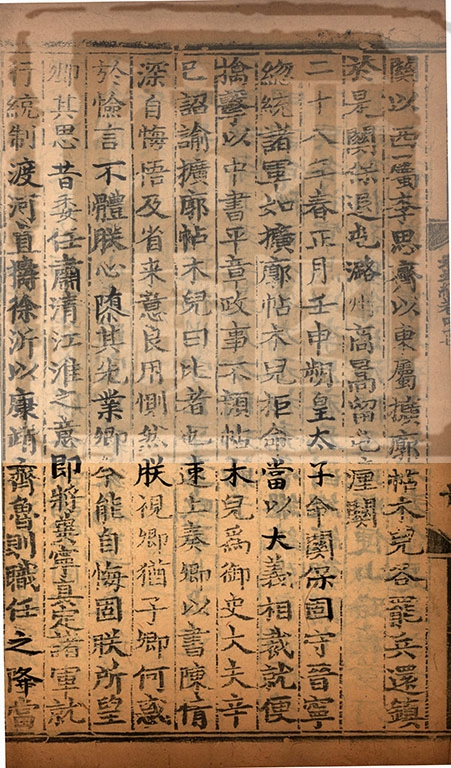 關以西屬李思齊以東屬擴廓帖木兒各罷兵還鎮
於是關保退屯潞州高暠留屯潼關
二十八年春正月壬申朔皇太子命關保固守晉寧
總統諸軍如擴廓帖木兒拒命當以大義相裁就便
擒擊以中書平章政事不顏帖木兒爲御史大夫辛
巳詔諭擴廓帖木兒曰比者也速上奏卿以書陳情
深自悔悟及省来意良用惻然朕視卿猶子卿何惑
於憸言不體朕心堕其先業卿今能自悔固朕所望
卿其思昔委任肅清江淮之意即將冀寧眞定諸軍就
行統制渡河直擣徐沂以康靖齊魯則職任之降當